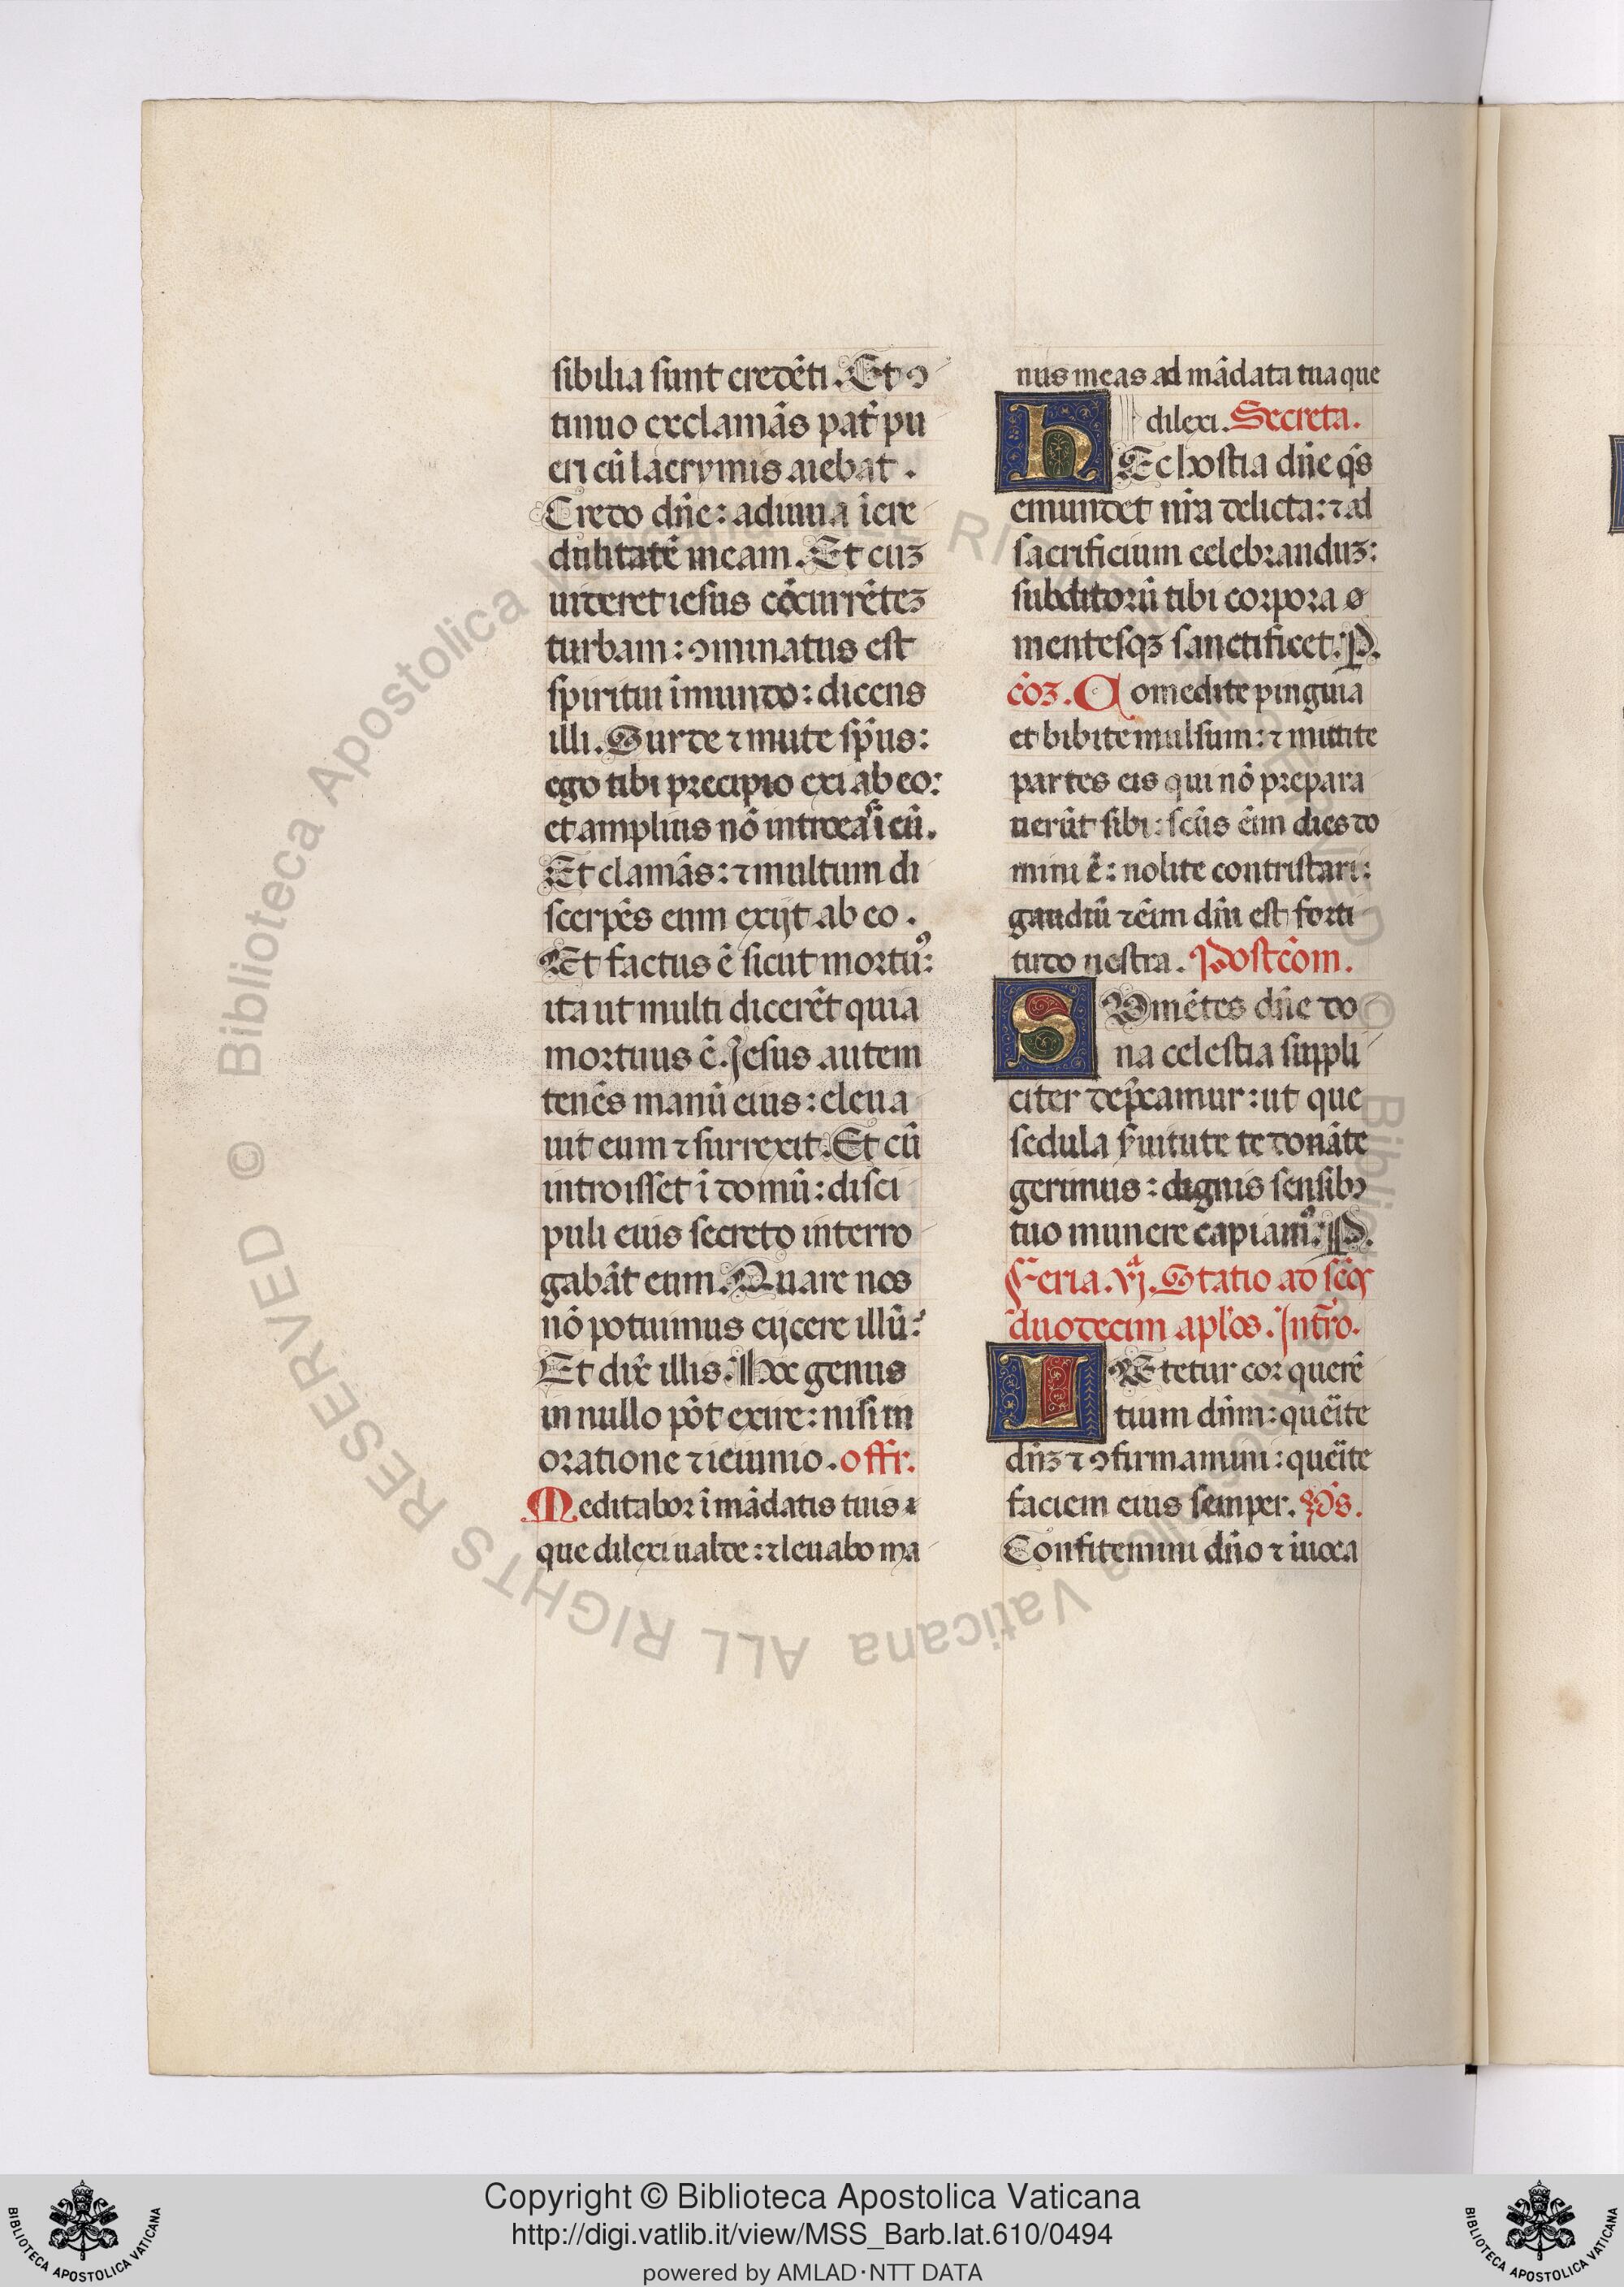 sibilia sunt credẽti. Et ↄ
tinuo exclamãs pat̃ pu
eri cũ lacrymis aiebat.
Credo dñe: adiuua ĩcre
dulitatẽ meam. Et cuȝ
uideret iesus cõcurrẽteȝ
turbam: ↄminatus est
spiritui ĩmundo: dicens
illi. Surde ⁊ mute sp̃us:
ego tibi precipio exi ab eo:
et amplius nõ introeas ĩ eũ.
Et clamãs: ⁊ multum di
scerpẽs eum exijt ab eo.
Et factus ẽ sicut mortuꝰ:
ita ut multi dicerẽt quia
mortuus ẽ. Jesus autem
tenẽs manũ eius: eleua
uit eum ⁊ surrexit. Et cũ
introisset ĩ domũ: disci
puli eius secreto interro
gabãt eum. Quare nos
nõ potuimus eijcere illũ?
Et dix̃ illis. Hoc genus
in nullo põt exire: nisi in
oratione ⁊ ieiunio. offr.
Meditabor ĩ mãdatis tuis
que dilexi ualde: ⁊ leuabo ma
nus meas ad mãdata tua que
dilexi. Secreta.
hEc hostia dñe q̃s
emundet nr̃a delicta: ⁊ ad
sacrificium celebranduȝ:
subditorũ tibi corpora
mentesqȝ sanctificet. P.
cõȝ. Comedite pinguia
et bibite mulsum: ⁊ mittite
partes eis qui nõ prepara
uerũt sibi: scũs eĩm dies do
mini ẽ: nolite contristari:
gaudiũ ⁊ẽim dñi est forti
tudo nestra. Postcõm.
SVmẽtes dñe do
na celestia suppli
citer dep̃camur: ut que
sedula s̃uitute te donãte
gerimus: dignis sensibꝫ
tuo munere capiamꝰ. P.
Feria. vj. Statio ad scõꝝ
duodecim apl̃os. Intro.
LEtetur cor querẽ
tium dñm: querite
dñȝ ⁊ ↄfirmamini: querite
faciem eius semper. Ps.
Confitemini dño ⁊ inuoca
© Biblioteca Apostolica Vaticana ALL RIGHTS RESERVED
Copyright © Biblioteca Apostolica Vaticana
http://digi.vatlib.it/view/MSS_Barb.lat.610/0494
powered by AMLAD·NTT DATA
BIBLIOTECA APOSTOLICA VATICANA
BIBLIOTECA APOSTOLICA VATICANA